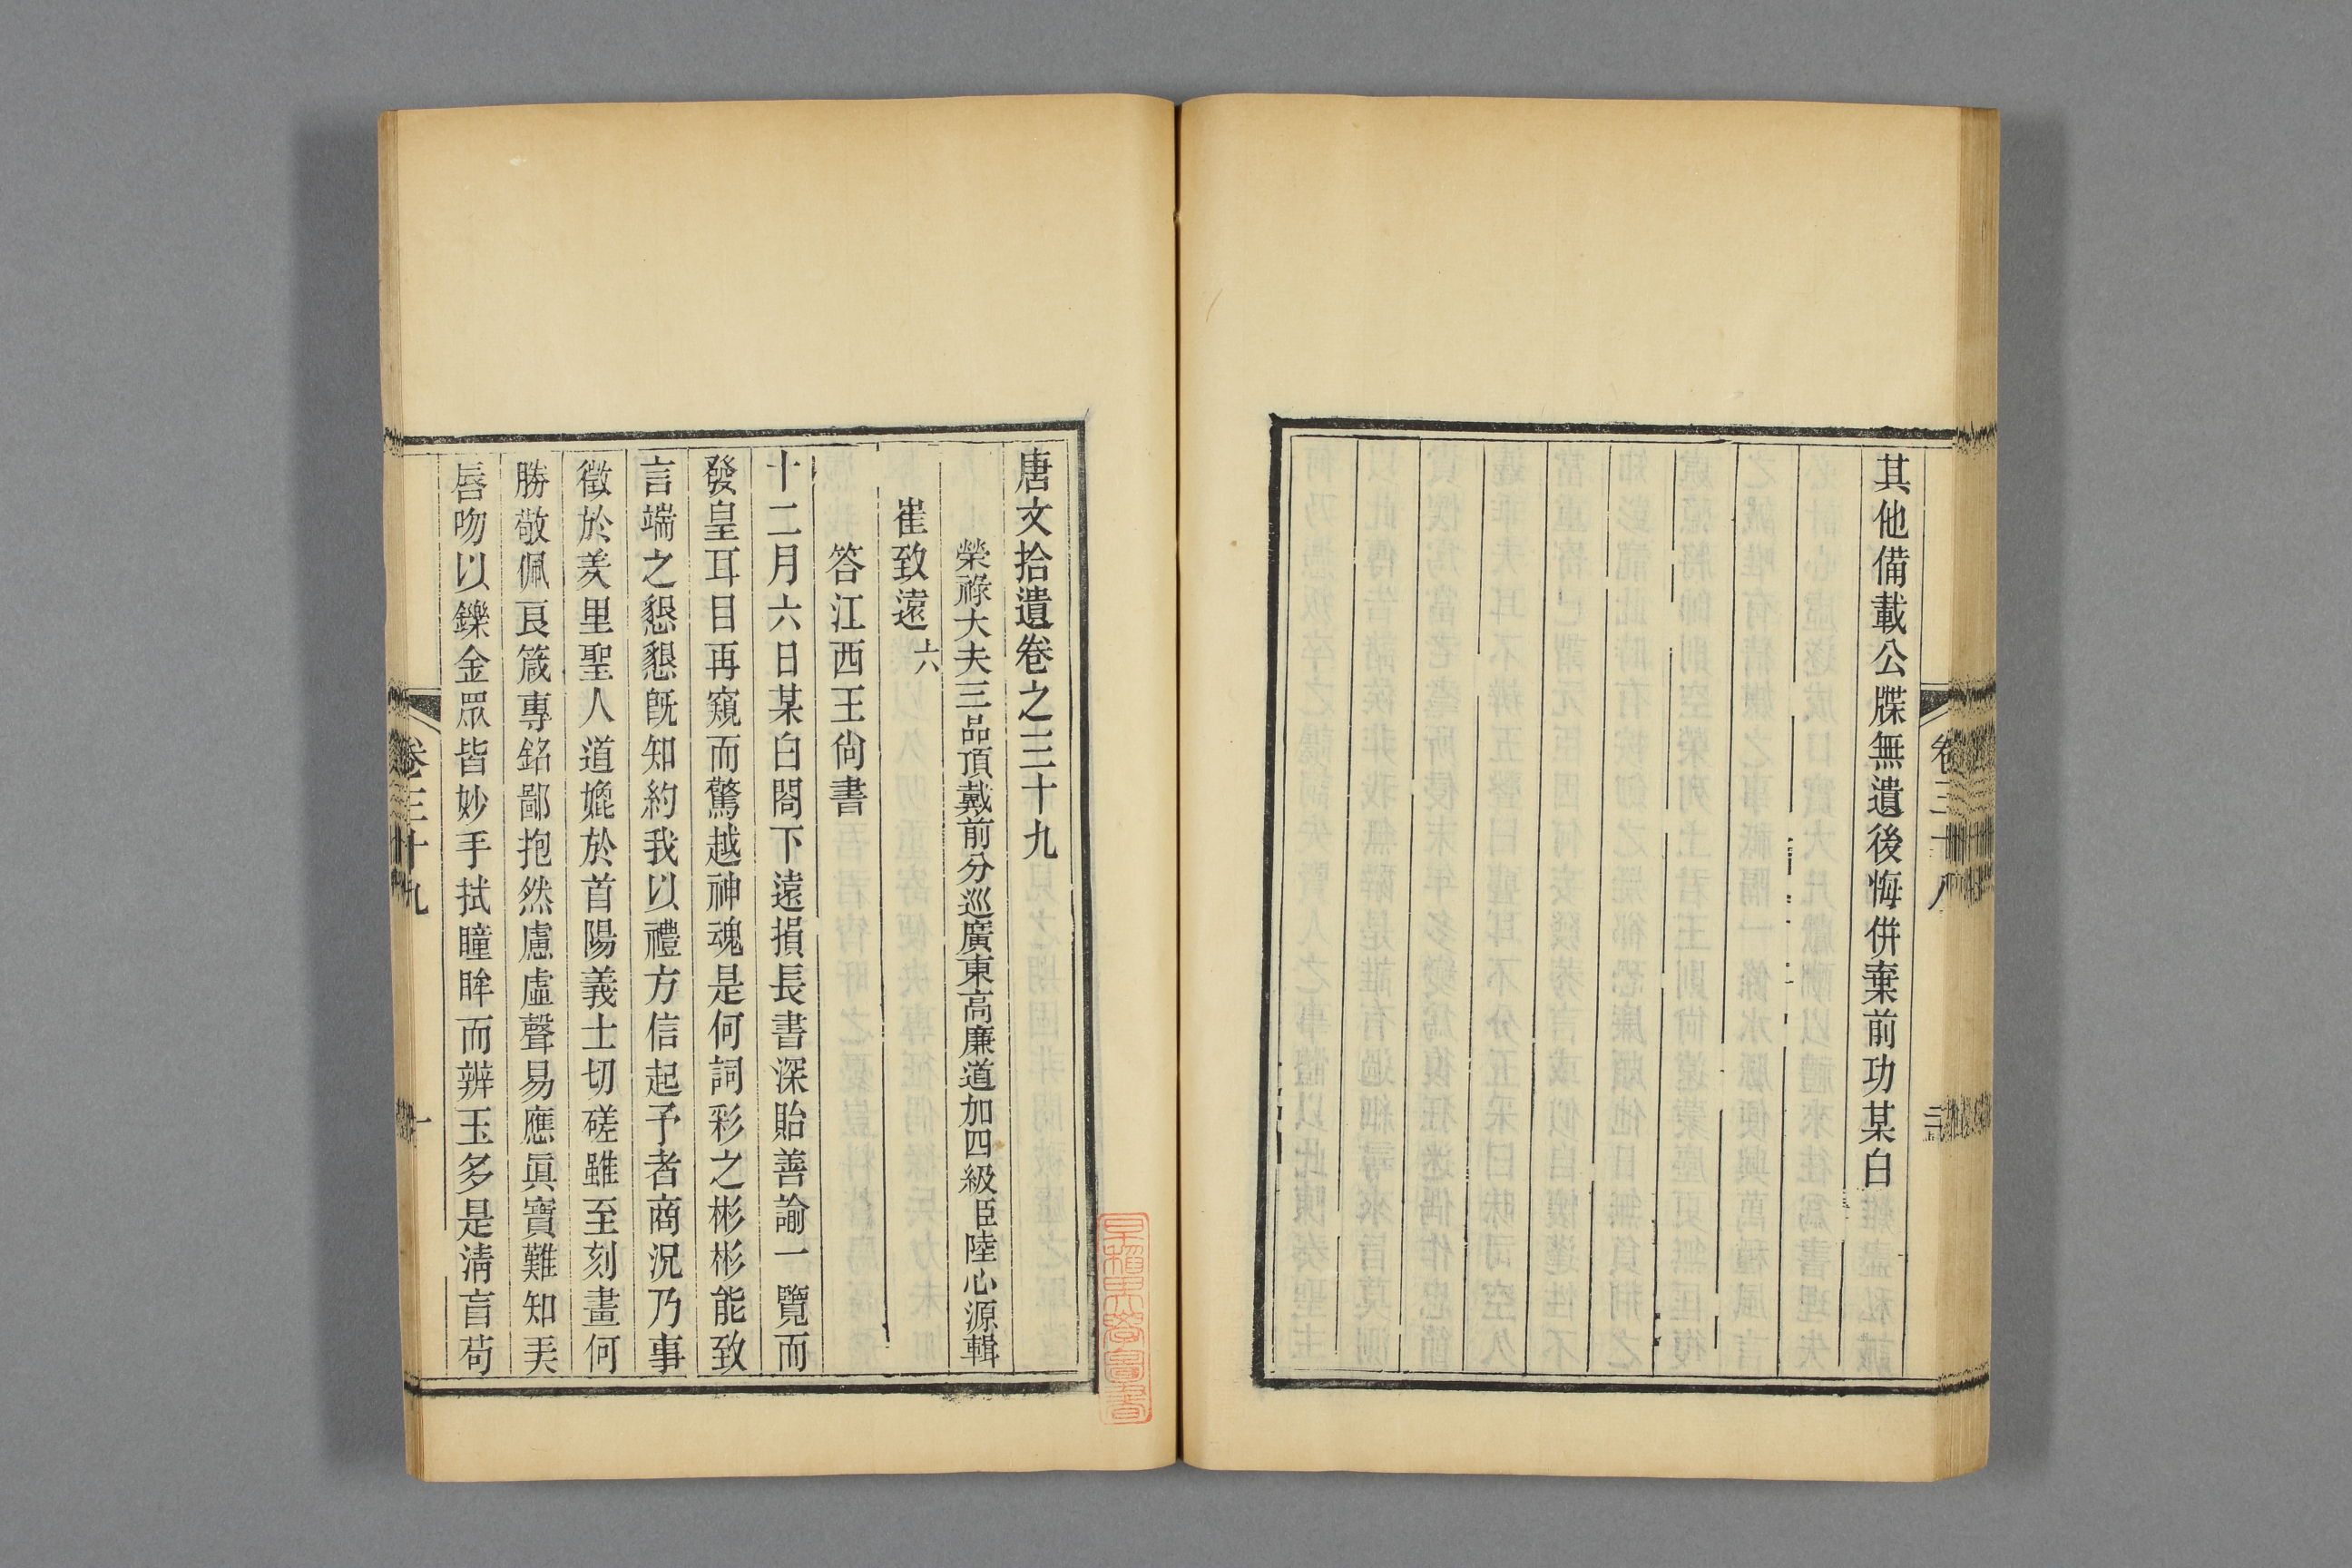 其他備載公牒無遺後悔併棄前功某白
卷三十八
唐文拾遺卷之三十九
榮祿大夫三品頂戴前分巡廣東高廉道加四級臣陸心源輯
崔致遠六
答江西王尙書
十二月六日某白閤下遠損長書深貽善諭一覽而
發皇耳目再窺而驚越神魂是何詞彩之彬彬能致
言端之懇懇旣知約我以禮方信起予者商況乃事
徵於羑里聖人道媲於首陽義士切磋雖至刻畫何
勝敬佩良箴專銘鄙抱然慮虛聲易應眞寶難知美
唇吻以鑠金眾皆妙手拭瞳眸而辨玉多是淸盲苟
卷三十九
一
早稻田大學圖書